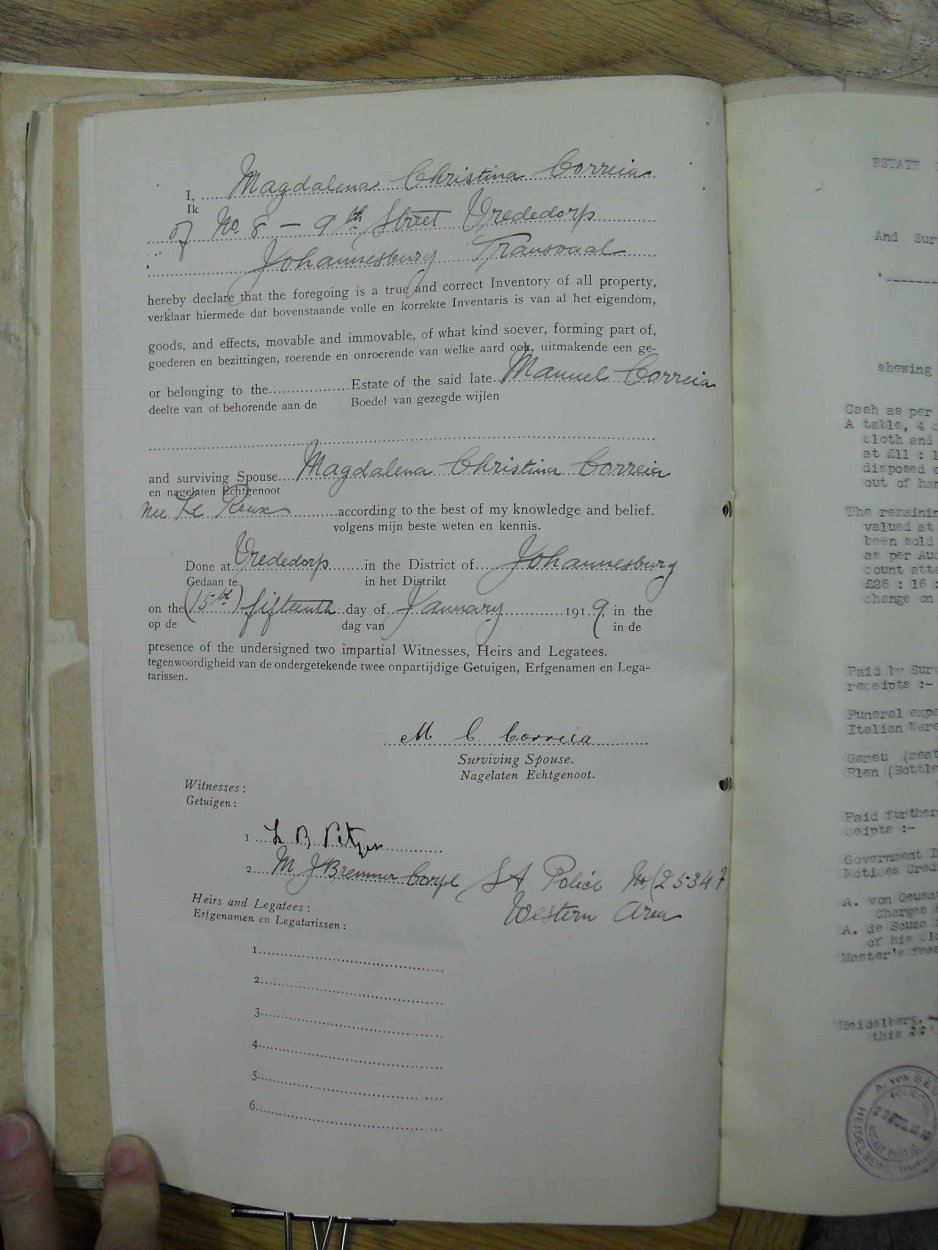 I, Magdalena Christina Correia
Ik
of No 8 – 9th Street Vrededorp
Johannesburg Transvaal
hereby declare that the foregoing is a true and correct Inventory of all property,
verklaar hiermede dat bovenstaande volle en korrekte Inventaris is van al het eigendom,
goods, and effects, movable and immovable, of what kind soever, forming part of,
goederen en bezittingen, roerende en onroerende van welke aard ook, uitmakende een ge-
or belonging to the Estate of the said late Manuel Correia
deelte van of behorende aan de Boedel van gezegde wijlen
and surviving Spouse Magdalena Christina Correia
en nagelaten Echtgenoot
nee Le Roux according to the best of my knowledge and belief.
volgens mijn beste weten en kennis.
Done at Vrededorp in the District of Johannesburg
Gedaan te in het Distrikt
on the (15th) fifteenth day of January 1919 in the
op de dag van in de
presence of the undersigned two impartial Witnesses, Heirs and Legatees.
tegenwoordigheid van de ondergetekende twee onpartijdige Getuigen, Erfgenamen en Lega-
tarissen.
M C Correia
Surviving Spouse.
Nagelaten Echtgenoot.
Witnesses:
Getuigen:
1
2. M J Bremner Corpl SA Police No (25347
Western Area
Heirs and Legatees:
Erfgenamen en Legatarissen:
1.
2.
3.
4.
5.
6.
ESTATE
And Sur
shewing
Cash as per
A table, 4
cloth and
at £11 : 1
disposed o
out of han
The remainin
valued at
been sold
as per Auc
count atta
£26 : 16 :
change on
Paid by Surv
receipts :-
Funeral expe
Italian Ware
(Bottle
Paid further
ceipts :-
Government
Notices Cred
A. von Geusau
Charges
A. de Souza
of his cla
Master's fees
Heidelberg,
this 22
A. VON GEU
HEIDELBERG